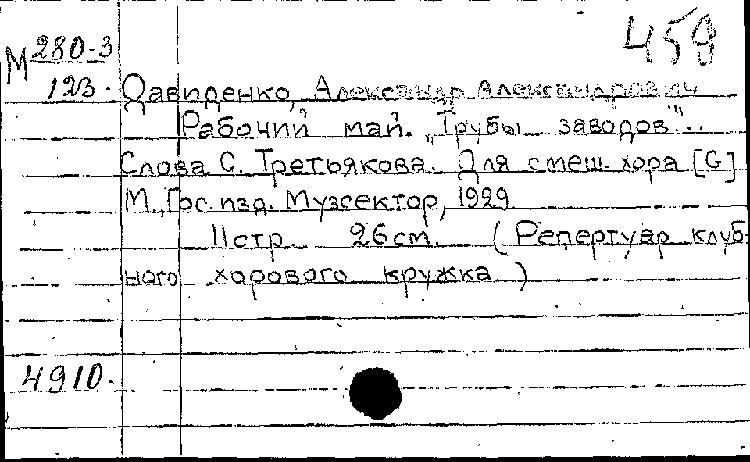 459
М 280-3
123.
Давиденко, Александр Александрович
Рабочий май. „Трубы заводов"...
Слова С. Третьякова. Для смеш. хора [G]
М., Гос. изд. Музсектор, 1929
11 стр. 26 см. (Репертуар клуб-
ного хорового кружка)
4910.